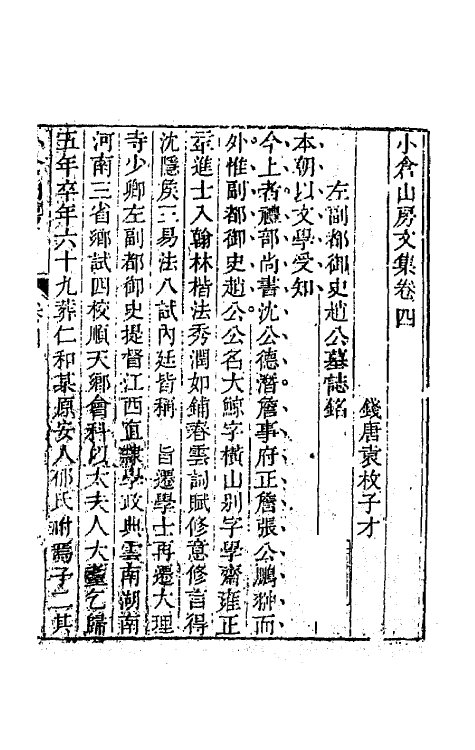 小倉山房文集卷四
錢唐袁枚子才
左副都御史趙公墓誌銘
本朝以文學受知
今上者禮部尚書沈公德潛詹事府正詹張公鵬翀而
外惟副都御史趙公公名大鯨字橫山别字學齋雍正
進士入翰林楷法秀潤如鋪春雲詞賦修意修言得
沈隱矦三易法八試內廷皆稱 旨遷學士再遷大理
寺少卿左副都御史提督江西直隸學政典雲南湖南
河南三省鄉試四校順天鄉會科以太夫人大耋乞歸
五年卒年六十九葬仁和某原安人郁氏祔焉子二其